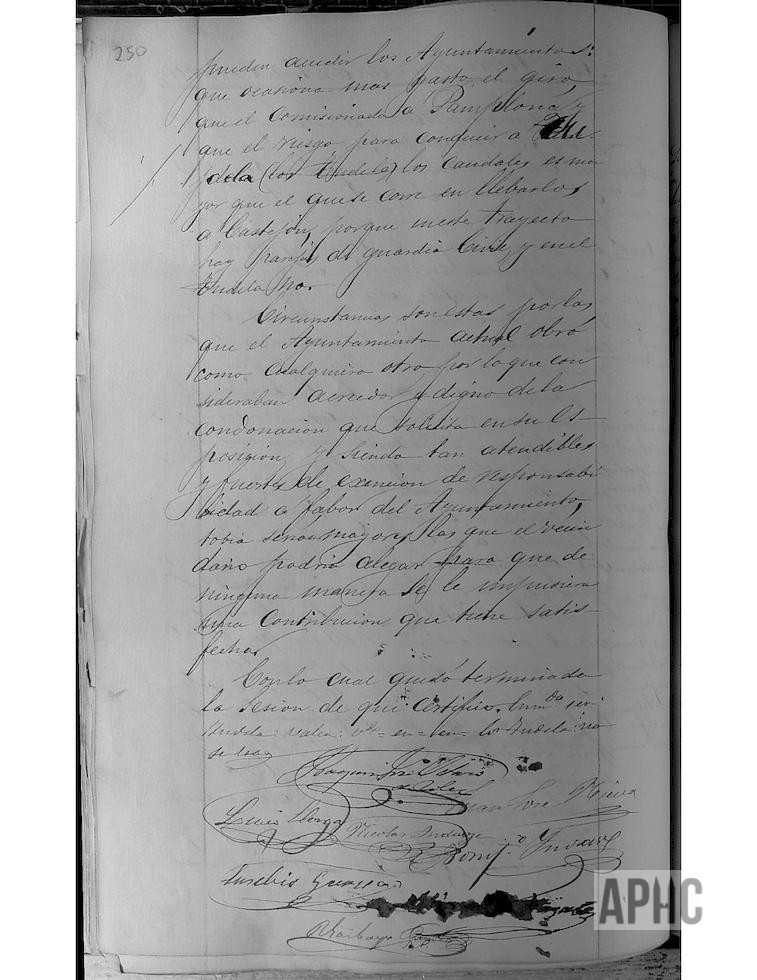 250
pueden acudir los Ayuntamientos:
que ocasiona mas gasto el giro
que el Comisionado a Pamplona y
que el riesgo para conducir a Tu-
dela (los Tudela) los caudales es ma
yor que el que se corre en llebarlos
a Castejon, porque en este trayecto
hay parejas de guardia Civil, y en el
Tudela no.
Circunstancias son estas por las
que el Ayuntamiento actual obró
como cualquiera otro por lo que con
sideraban acreedor y digno de la
condonacion que solicita en su Es-
posicion, y siendo tan atendibles
y fuertes de exencion de responsabi
lidad a fabor del Ayuntamiento,
tobia serian mayores las que el vecin
dario podria alegar para que de
ninguna manera se le impusiera
una Contribucion que tiene satis-
fecha.
Con lo cual quedó terminada
la Sesion de que certifico. Enm.da ser:
Tudela: valen: en= los Tudela: no
se lea
Joaquin
Juan José
Luis Llorga Nicolas
Bonif.o
Eusebio Garcia